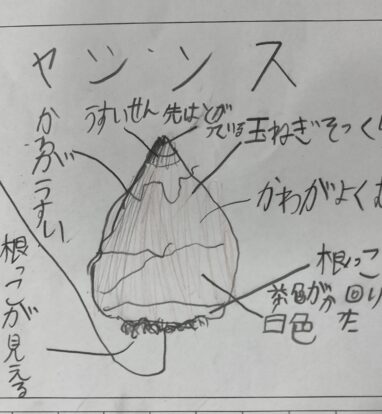 ヤシンス
うすいせん
先はとが
っている
玉ねぎそっく
かわがうすい
かわがよく
根っこ
茶色がか
白色
回り
た
根っこが見える